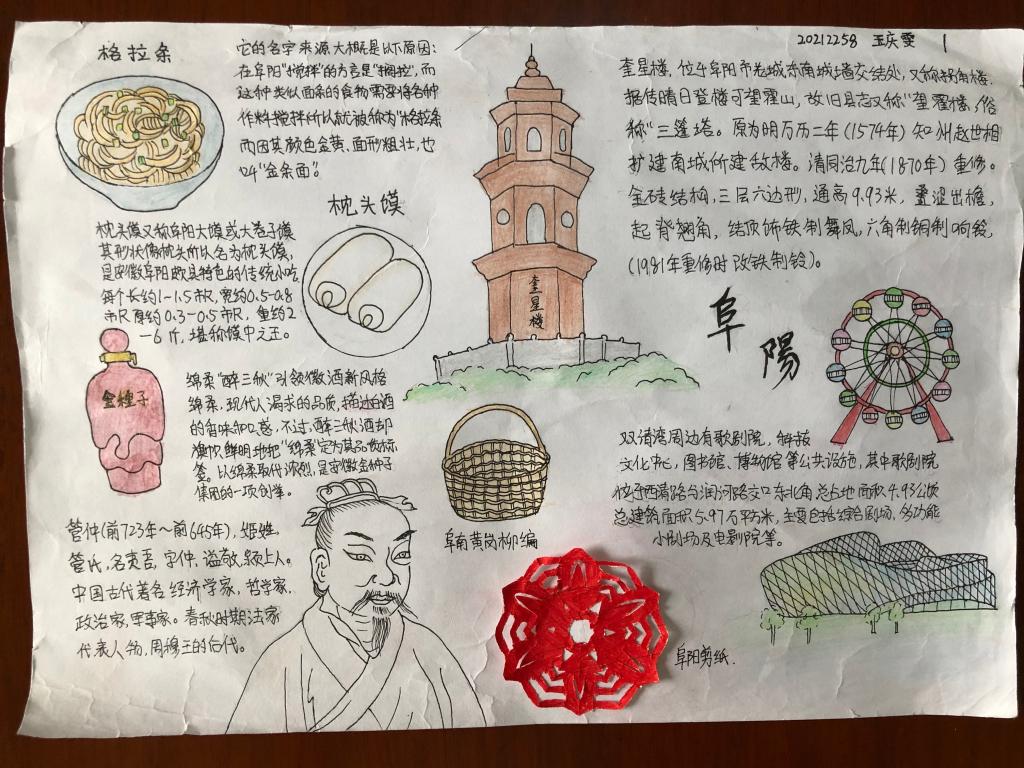 20212258 王庆雯 1
格拉条
它的名字来源大概是以下原因：
在阜阳“搅拌”的方言是“搁拉”，而
这种类似面条的食物需要将各种
作料搅拌所以就被称为“格拉条
而因其颜色金黄、面形粗壮，也
叫“金条面”。
枕头馍
枕头馍又称阜阳大馍或大卷子馍
其形状像枕头所以名为枕头馍，
是安徽阜阳颇具特色的传统小吃
每个长约1-1.5市尺，宽约0.5-0.8
市尺厚约0.3-0.5市尺，重约2
-6斤，堪称馍中之王。
奎星楼
奎星楼，位于阜阳市老城东南城墙交结处，又称拐角楼。
据传晴日登楼可望霍山，故旧县志又称“望霍楼，俗
称“三篷塔。原为明万历二年(1574年)知州赵世相
扩建南城所建敌楼。清同治九年(1870年)重修。
全砖结构，三层六边形，通高9.93米，叠涩出檐，
起脊翘角，结顶饰铁制舞凤，六角制铜制响铃，
(1981年重修时改铁制铃)。
阜陽
金種子
绵柔“醉三秋”引领徽酒新风格
绵柔，现代人渴求的品质，描述白酒
的香味和口感，不过，醉三秋酒却
旗帜鲜明地把“绵柔”定为其品质标
签。以绵柔取代浓烈，是安徽金种子
集团的一项创举。
阜南黄岗柳编
双清湾周边有歌剧院，科技
文化中心，图书馆、博物馆等公共设施，其中歌剧院
位于西清路与润河路交口东北角总占地面积4.93公顷
总建筑面积5.97万平方米，主要包括综合剧场、多功能
小剧场及电影院等。
管仲(前723年～前645年)，姬姓，
管氏，名夷吾，字仲，谥敬，颍上人。
中国古代著名经济学家，哲学家，
政治家，军事家。春秋时期法家
代表人物，周穆王的后代。
阜阳剪纸.